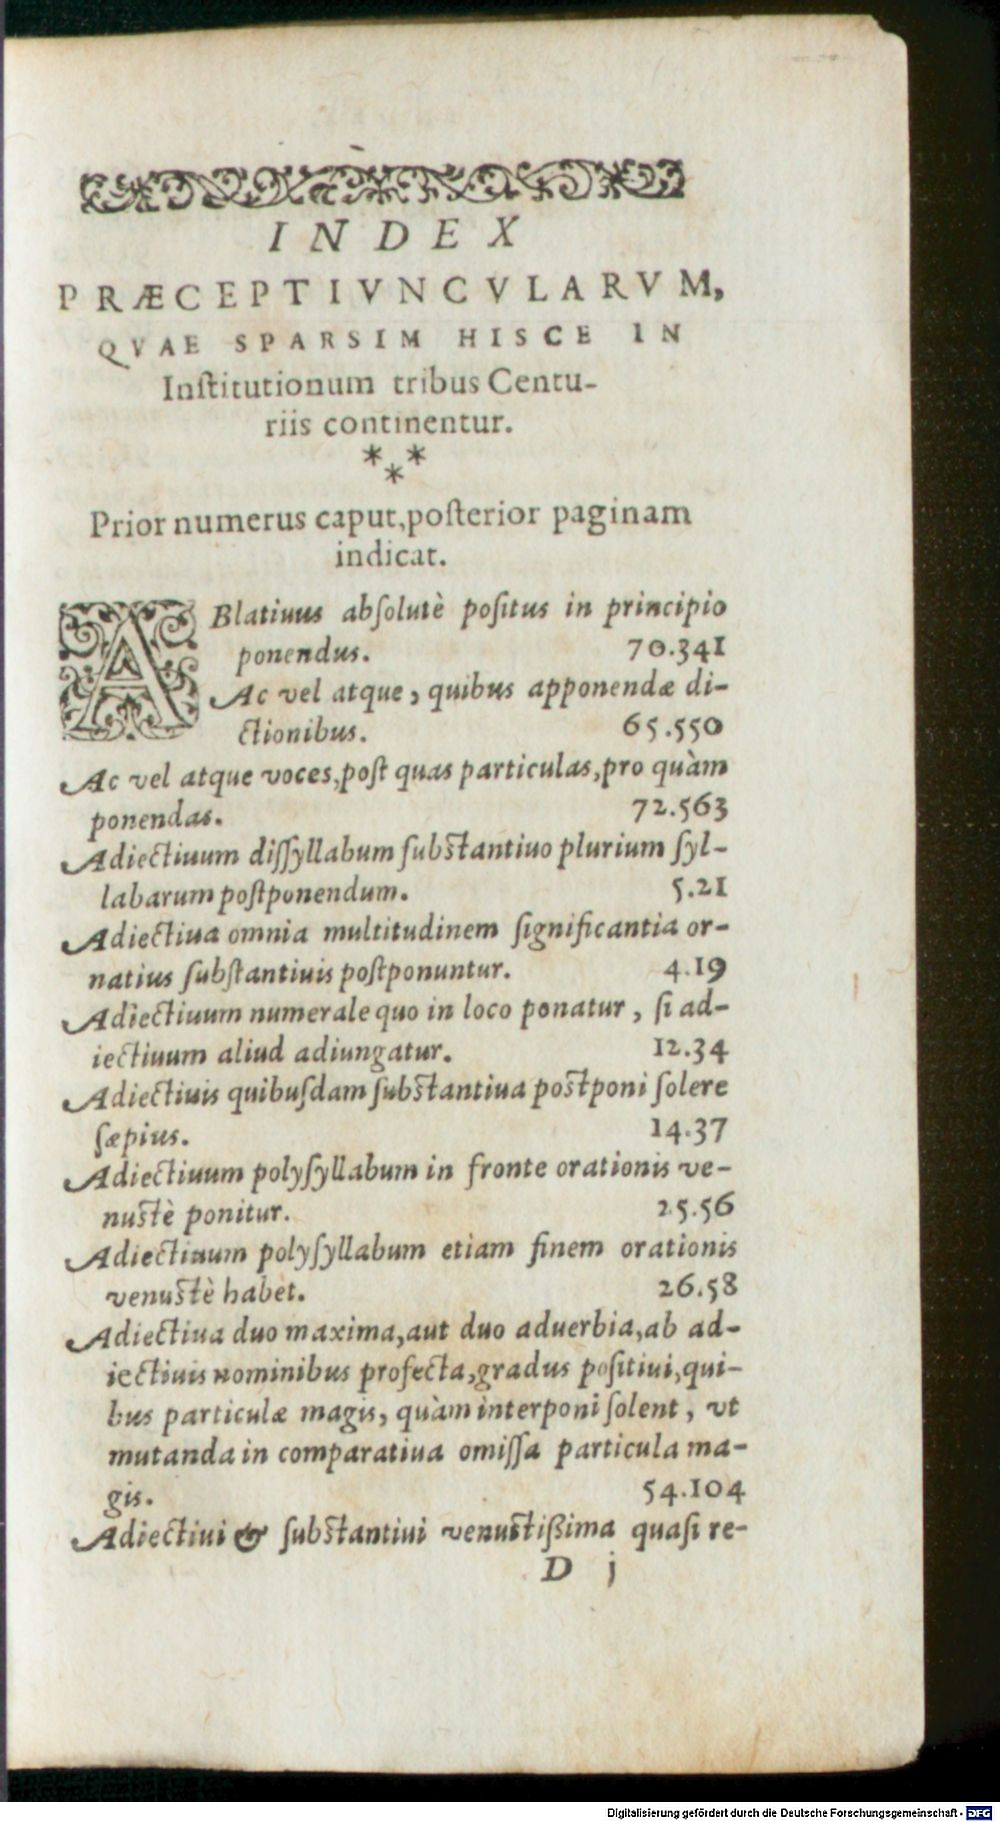 INDEX
PRÆCEPTIVNCVLARVM,
QVAE SPARSIM HISCE IN
Inſtitutionum tribus Centu-
riis continentur.
* * *
Prior numerus caput, poſterior paginam
indicat.
ABlatiuus abſolutè poſitus in principio
ponendus. 70.341
Ac vel atque, quibus apponendæ di-
ctionibus. 65.550
Ac vel atque voces, poſt quas particulas, pro quàm
ponendas. 72.563
Adiectiuum diſſyllabum ſubſtantiuo plurium ſyl-
labarum poſtponendum. 5.21
Adiectiua omnia multitudinem ſignificantia or-
natius ſubſtantiuis poſtponuntur. 4.19
Adiectiuum numerale quo in loco ponatur, ſi ad-
iectiuum aliud adiungatur. 12.34
Adiectiuis quibuſdam ſubſtantiua poſtponi ſolere
ſæpius. 14.37
Adiectiuum polyſyllabum in fronte orationis ve-
nuſtè ponitur. 25.56
Adiectiuum polyſyllabum etiam finem orationis
venuſtè habet. 26.58
Adiectiua duo maxima, aut duo aduerbia, ab ad-
iectiuis nominibus profecta, gradus poſitiui, qui-
bus particulæ magis, quàm interponi ſolent, vt
mutanda in comparatiua omiſſa particula ma-
gis. 54.104
Adiectiui & ſubſtantiui venuſtißima quaſi re-
D j
Digitalisierung gefördert durch die Deutsche Forschungsgemeinschaft - DFG